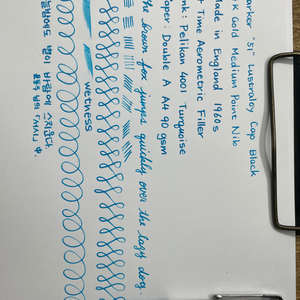 arker "51" Lustraloy Cap Black
K Gold Medium Point Nib
Made in England 1960s
t Time Aerometric Filler
nk: Pelikan 4001 Turquoise
aper: Double A A4 90 gsm
the brown fox jumps quickly over the lazy dog.
wetness
별이 바람에 스치운다.
윤동주 님의 「서시」 中